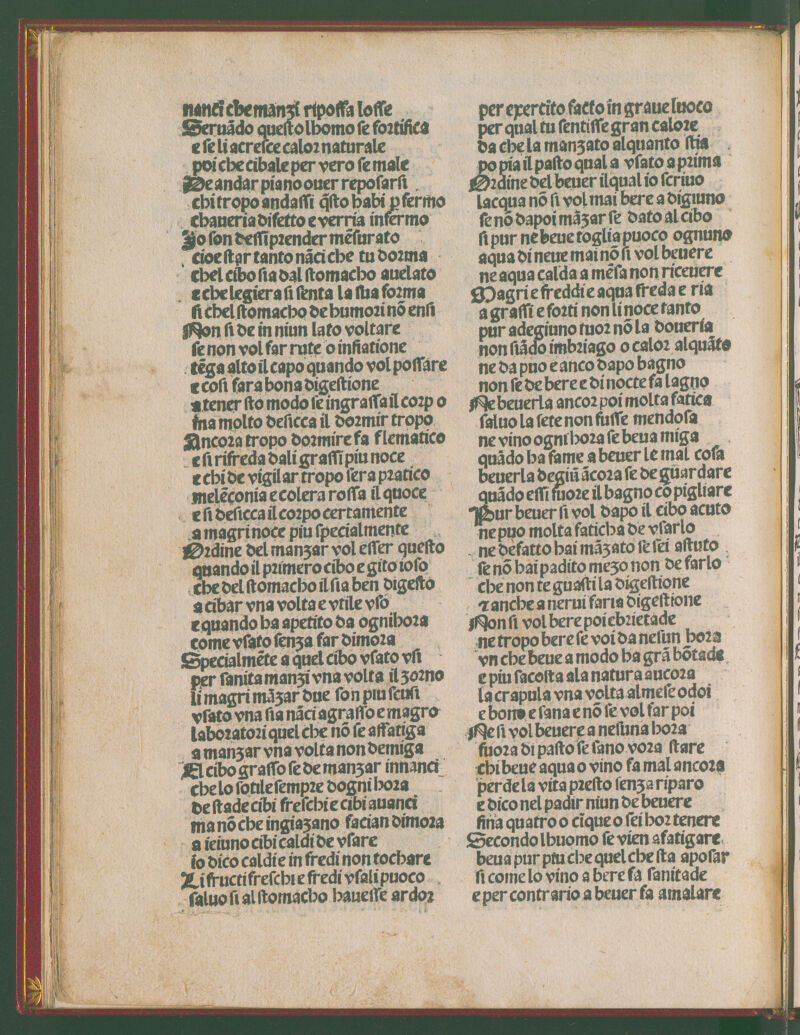 nanci che manzi ripossa losse
Seruādo questo lhomo se fortifica
e se li acresce calor naturale
poi che cibale per vero se male
De andar piano ouer reposarsi
chi tropo andassi q̄sto habi ꝑ fermo
chaueria difetto e verria infermo
Jo son dessi prender mēsurato
cioe star tanto nāci che tu dorma
chel cibo sia dal stomacho auelato
e che legiera si senta la sua forma
si chel stomacho de humori nō ensi
Non si de in niun lato voltare
se non vol far rute o infiatione
tēga alto il capo quando vol possare
e cosi fara bona digestione
a tener sto modo se ingrassa il corp o
ma molto desicca il dormir tropo
Ancora tropo dormire fa flematico
e si rifreda dali grassi piu noce
e chi de vigilar tropo sera pratico
melēconia e colera rossa il quoce
e si desicca il corpo certamente
a magri noce piu specialmente
Ordine del manzar vol esser questo
quando il primero cibo e gito ioso
che del stomacho il sia ben digesto
a cibar vna volta e vtile vso
e quando ha apetito da ognihora
come vsato senza far dimora
Specialmēte a quel cibo vsato vsi
per sanita manzi vna volta il zorno
li magri māzar due son piu scusi
vsato vna sia nāci a grasso e magro
laboratori quel che nō se affatiga
a manzar vna volta non demiga
El cibo grasso se de manzar innanci
che lo sotile sempre dogni hora
de stade cibi freschi e cibi auanci
ma nō che ingiazano facian dimora
a ieiuno cibi caldi de vsare
io dico caldi e in fredi non tochare
Li fructi freschi e fredi vsali puoco
saluo si al stomacho hauesse ardor
per exercito facto in graue luoco
per qual tu sentisse gran calore
da che la manzato alquanto stia
po pia il pasto qual a vsato a prima
Ordine del beuer ilqual io scriuo
lacqua nō si vol mai bere a digiuno
se nō dapoi māzar se dato al cibo
si pur ne beue toglia puoco ognuno
aqua di neue mai nō si vol beuere
ne aqua calda a mēsa non riceuere
Magri e freddi e aqua freda e ria
a grassi e forti non li noce tanto
pur adegiuno tuor nō la doueria
non siādo imbriago o calor alquāto
ne da puo e anco dapo bagno
non se de bere e di nocte fa lagno
Ne beuerla ancor poi molta fatica
saluo la sete non fusse mendosa
ne vino ogni hora se beua miga
quādo ha fame a beuer le mal cosa
beuerla degiū ācora se de guardare
quādo essi fuore il bagno cō pigliare
Pur beuer si vol dapo il cibo acuto
ne puo molta faticha de vsarlo
ne defatto hai māzato se sei astuto
se nō hai padito mezo non de farlo
che non te guasti la digestione
⁊ anche a nerui faria digestione
Non si vol bere poi ebrietade
ne tropo bere se voi da nesun hora
vn che beue a modo ha grā bōtade
e piu sacosta ala natura aucora
la crapula vna volta al mese odoi
e bono e sana e nō se vol far poi
Ne si vol beuere a nesuna hora
fuora di pasto se sano vora stare
chi beue aqua o vino fa mal ancora
perde la vita presto senza riparo
e dico nel padir niun de beuere
fina quatro o cīque o sei hor tenere
Secondo lhuomo se vien afatigare
beua pur piu che quel che sta aposar
si come lo vino a bere fa sanitade
e per contrario a beuer fa amalare